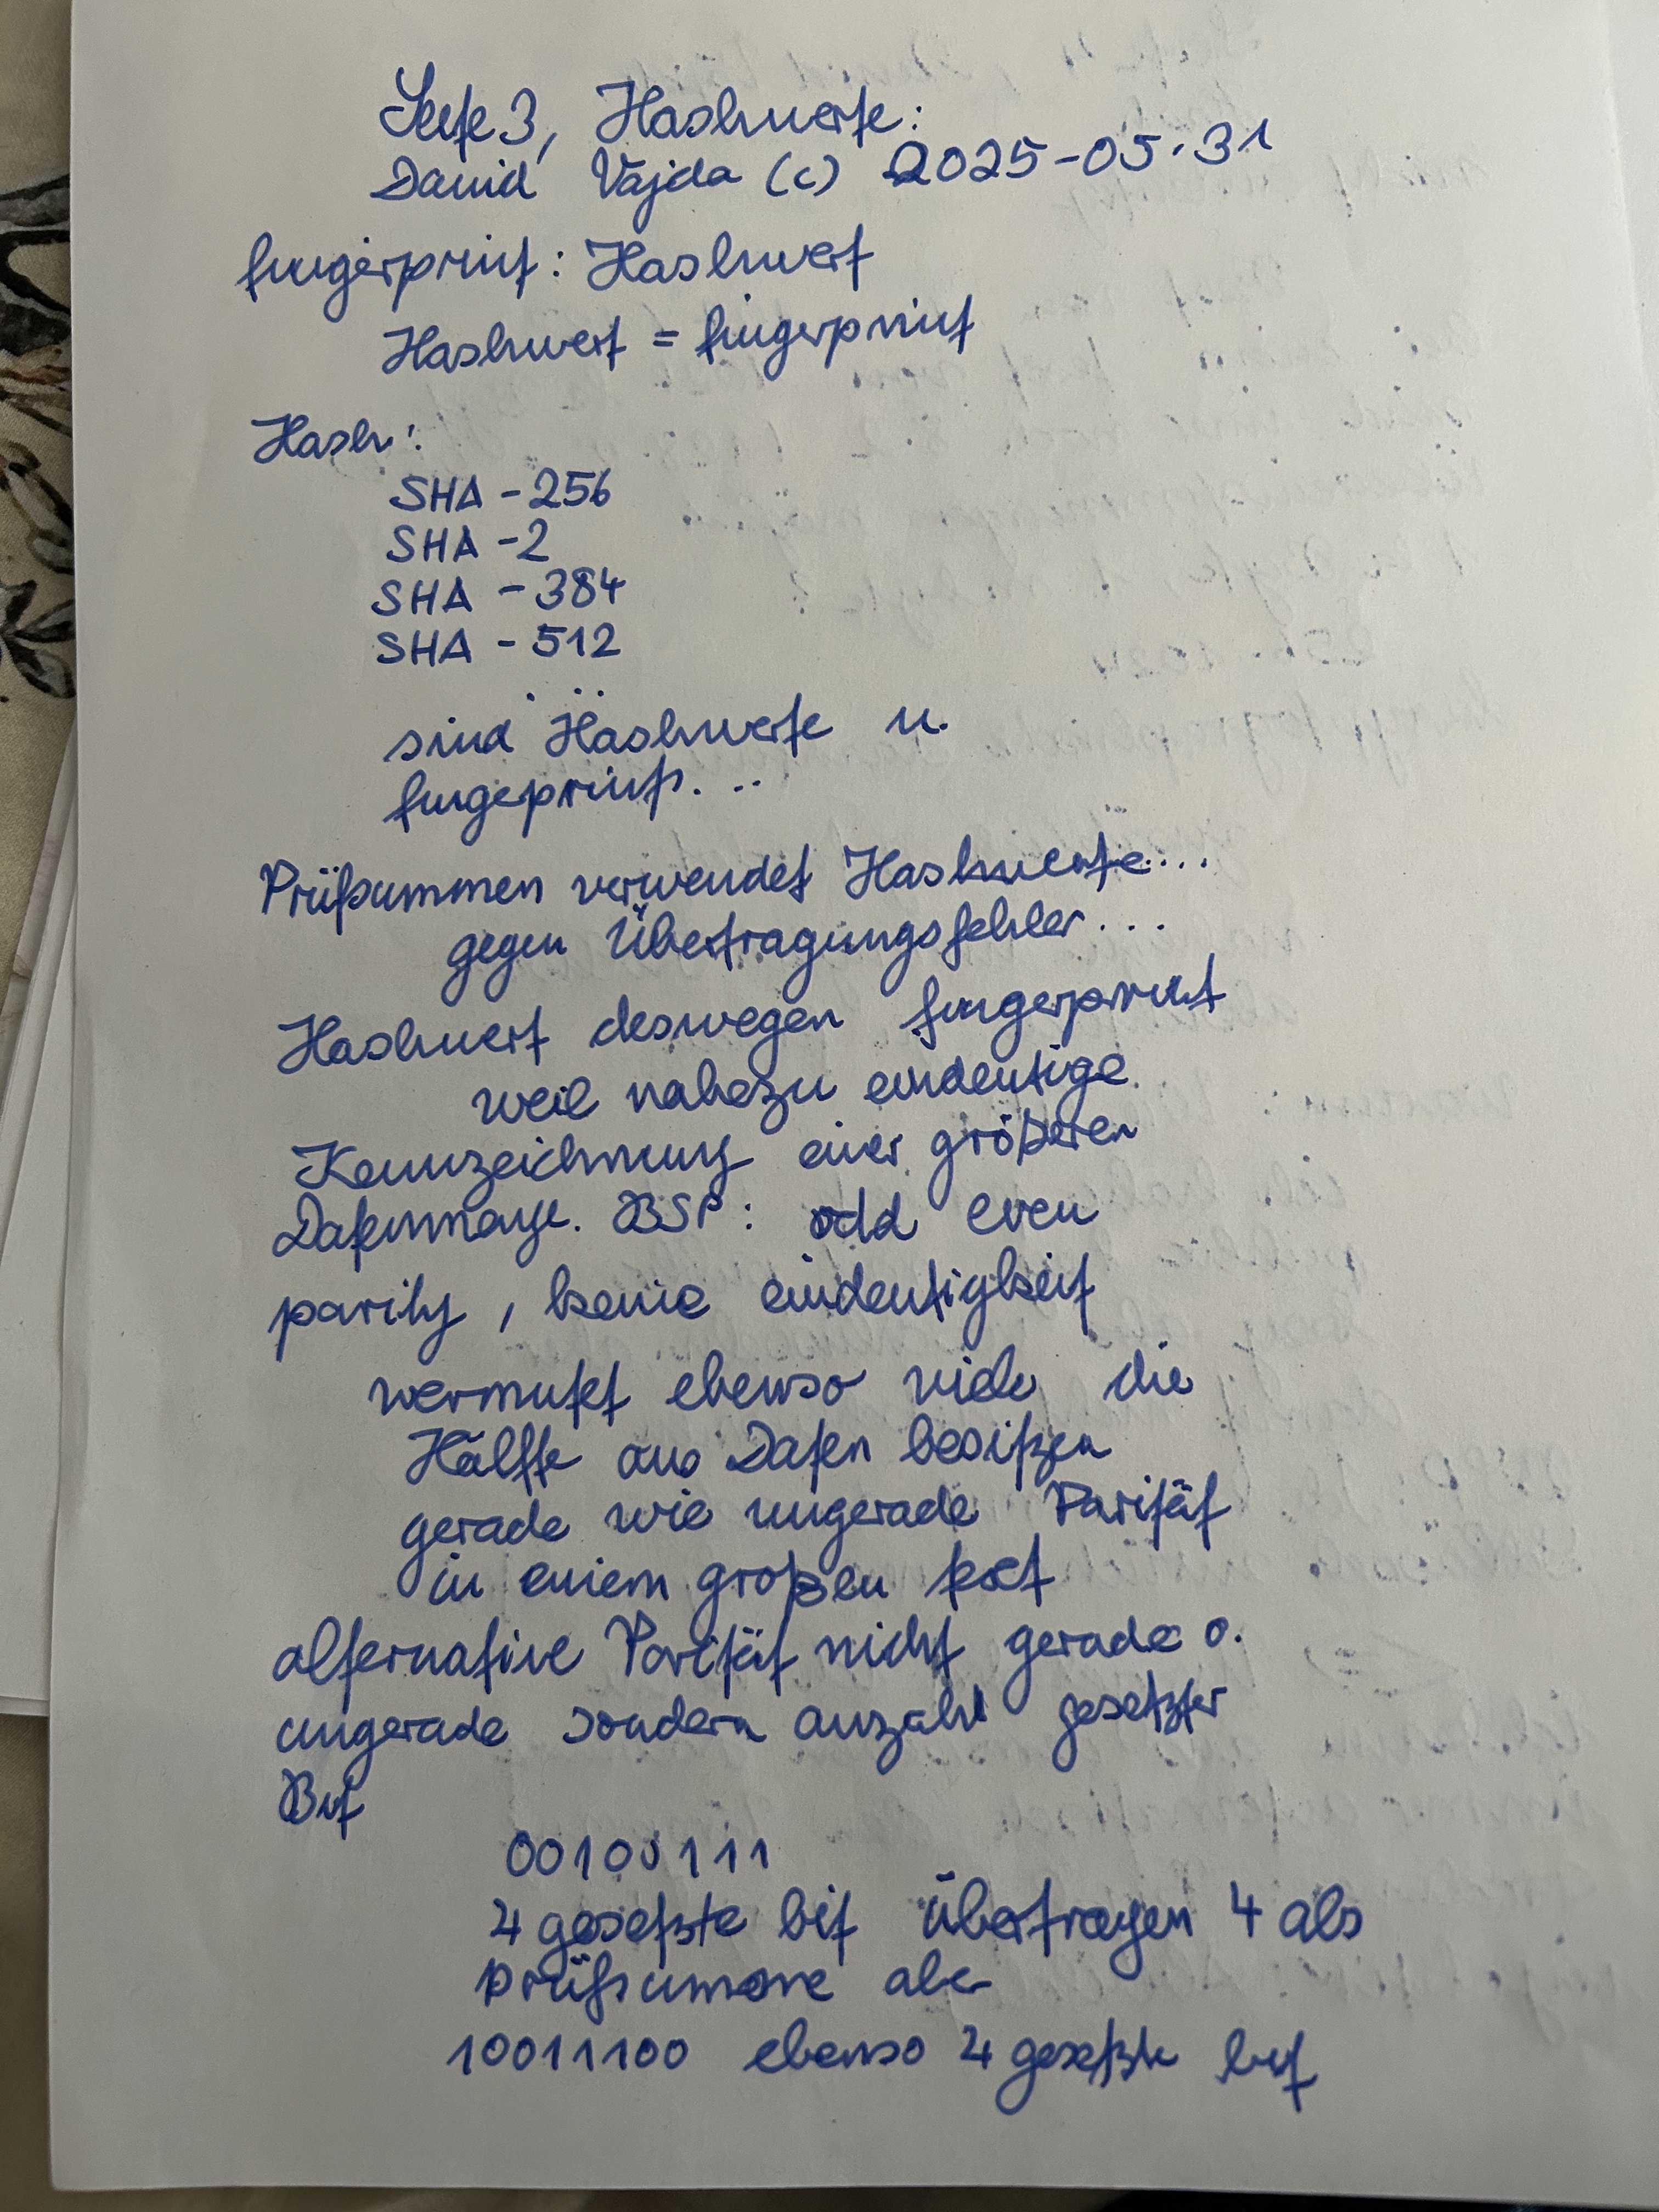 Seite 3, Hashwerte:
David Vajda (c) 2025-05-31
fingerprint: Hashwert
Hashwert = fingerprint
Hash:
SHA-256
SHA-2
SHA-384
SHA-512
...
sind Hashwerte u.
fingeprints...
Prüfsummen verwendet Hashwerte...
gegen Übertragungsfehler...
Hashwert deswegen fingerprint
weil nahezu eindeutige
Kennzeichnung einer größeren
Datenmenge. BSP: odd even
parity, keine eindeutigkeit
vermutet ebenso viele die
Hälfte aus Daten besitzen
gerade wie ungerade Parität
in einem großen
alternative Parität nicht gerade o.
ungerade sondern anzahl gesetzter
Bit
00100111
4 gesetzte bit übertragen 4 als
prüfsumme aber
10011100 ebenso 4 gesetzte bit